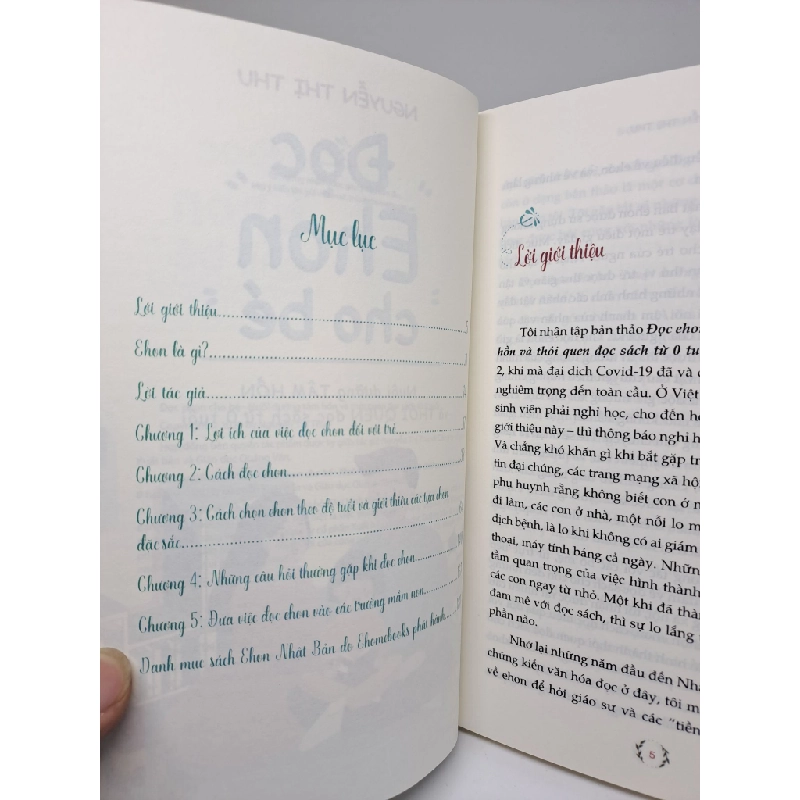 Mục lục
Lời giới thiệu
Ehon là gì?
Lời tác giả
Chương 1: Lợi ích của việc đọc ehon đối với trẻ
Chương 2: Cách đọc ehon
Chương 3: Cách chọn ehon theo độ tuổi và giới thiệu các tựa ehon
đặc sắc
Chương 4: Những câu hỏi thường gặp khi đọc ehon
Chương 5: Đưa việc đọc ehon vào các trường mầm non
Danh mục sách Ehon Nhật Bản do Ehomebooks phát hành
Lời giới thiệu
Tôi nhận tập bản thảo Đọc ehon
hồn và thói quen đọc sách từ 0 tu
2, khi mà đại dịch Covid-19 đã và
nghiêm trọng đến toàn cầu. Ở Việt
sinh viên phải nghỉ học, cho đến
giới thiệu này – thì thông báo nghỉ
Và chẳng khó khăn gì khi bắt gặp
tin đại chúng, các trang mạng xã hộ
phụ huynh rằng không biết con ở
đi làm, các con ở nhà, một nỗi lo
dịch bệnh, là lo khi không có ai giám
thoại, máy tính bảng cả ngày. Những
tầm quan trọng của việc hình thành
các con ngay từ nhỏ. Một khi đã thà
đam mê với đọc sách, thì sự lo lắng
phần nào.
Nhớ lại những năm đầu đến Nhậ
chứng kiến văn hóa đọc ở đây, tôi m
về ehon để hỏi giáo sư và các "tiền
5
NGUYỄN THỊ THU
Đọc
Ehon
cho bé